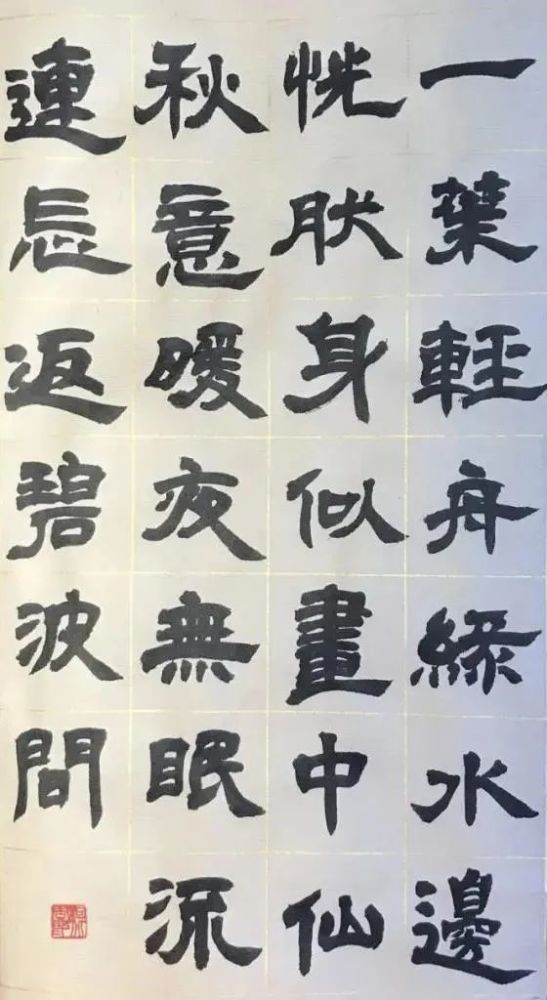 一葉輕舟緣水邊
恍肰身似畫中仙
秋意暖夜無眠流
連忘返碧波間